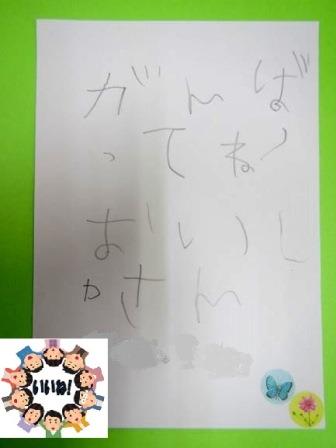 がんば
ってね!
おいし
ゃさん
いいね!